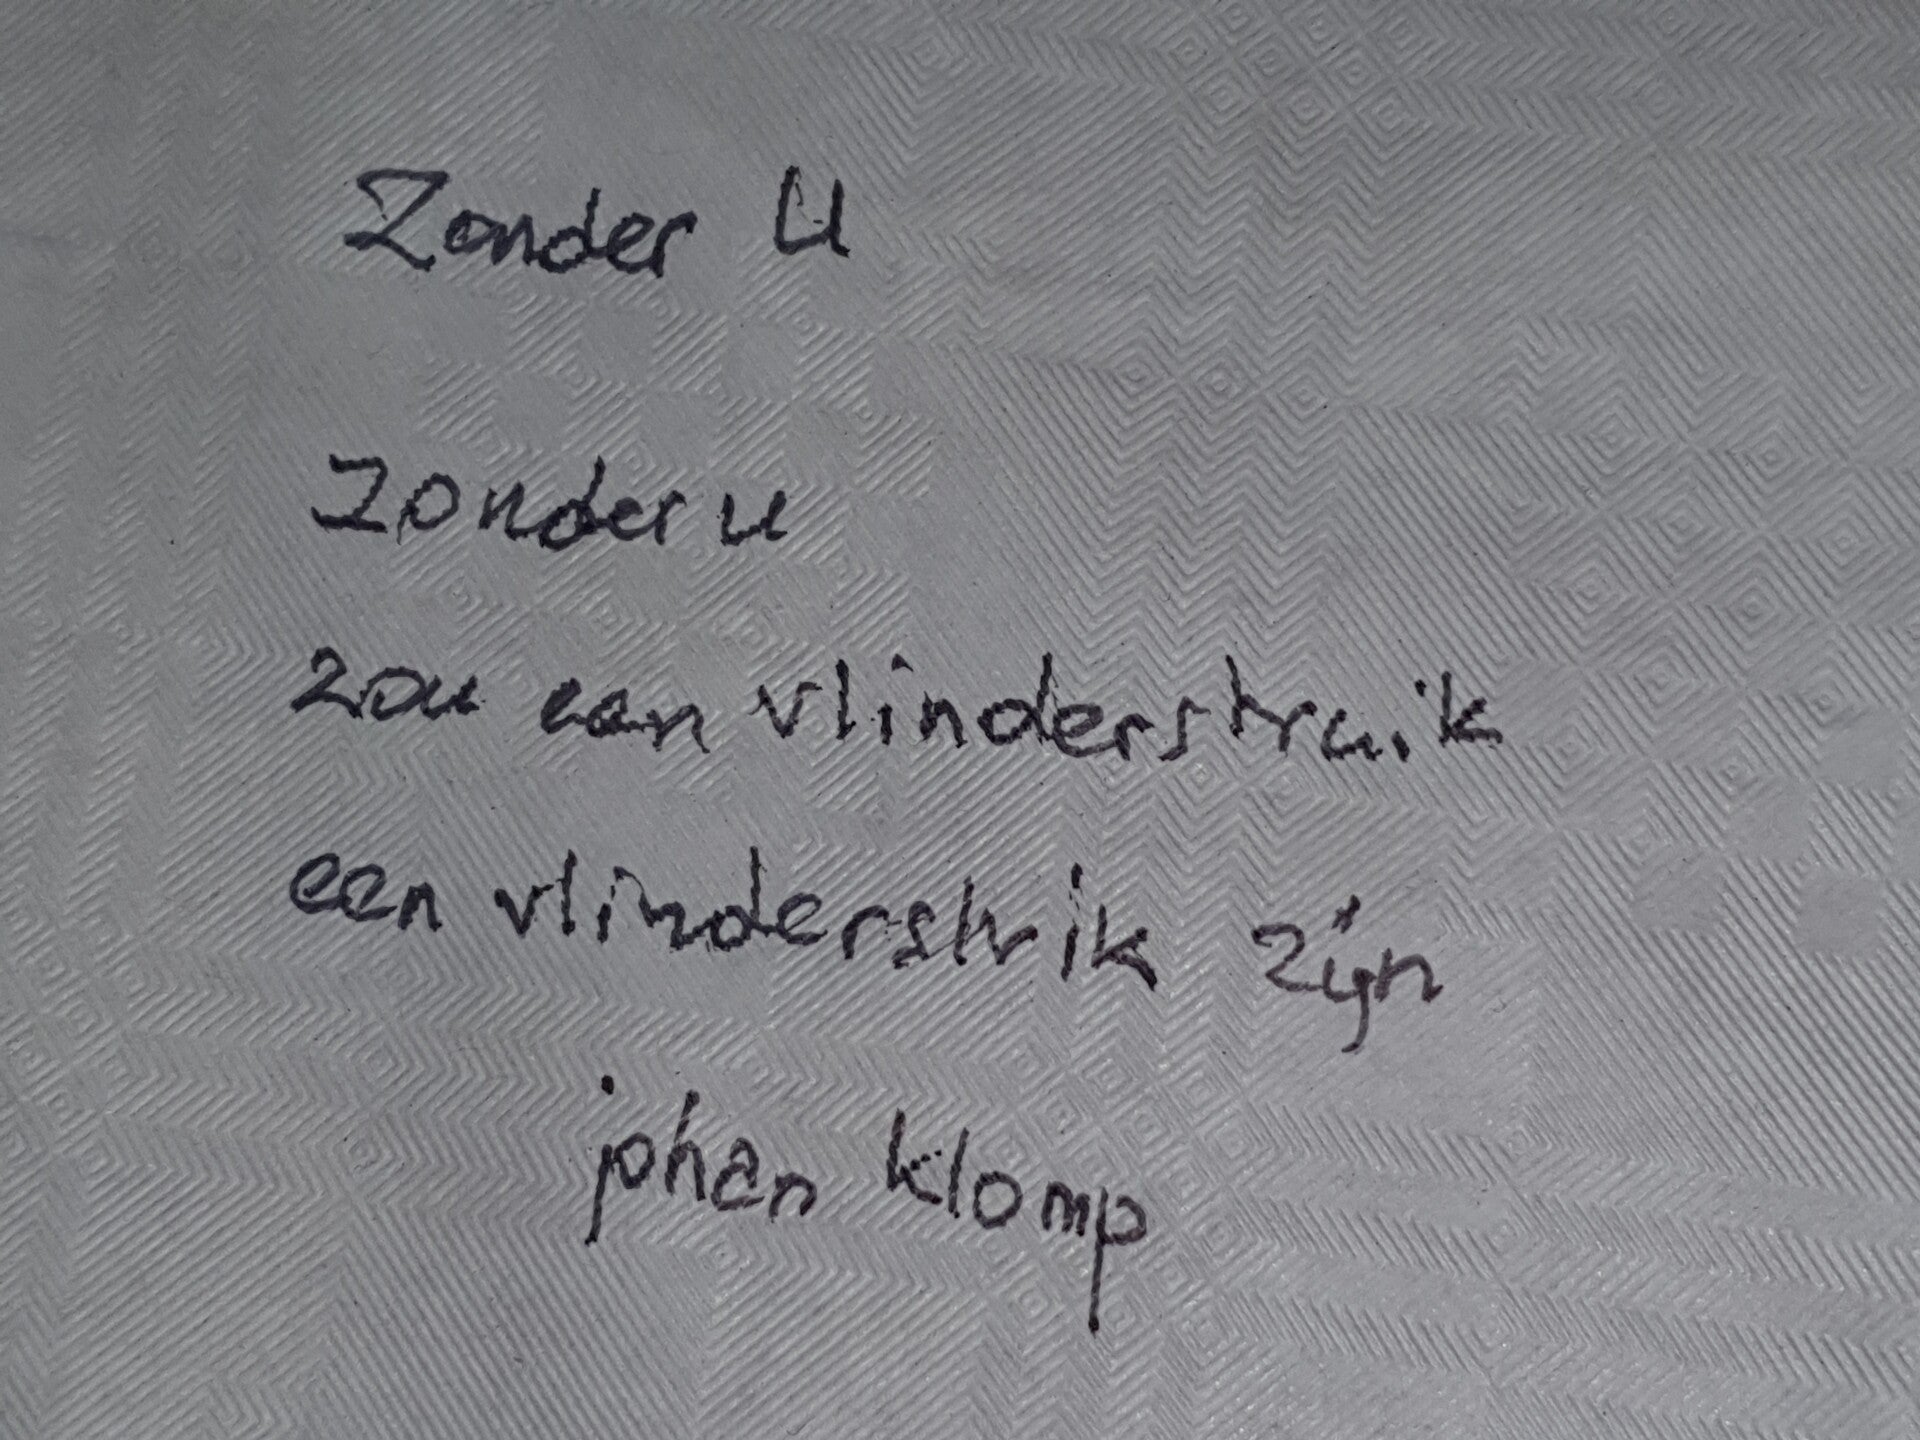 Zonder U
Zonder u
zou een vlinderstruik
een vlinderstrik zijn
johan klomp